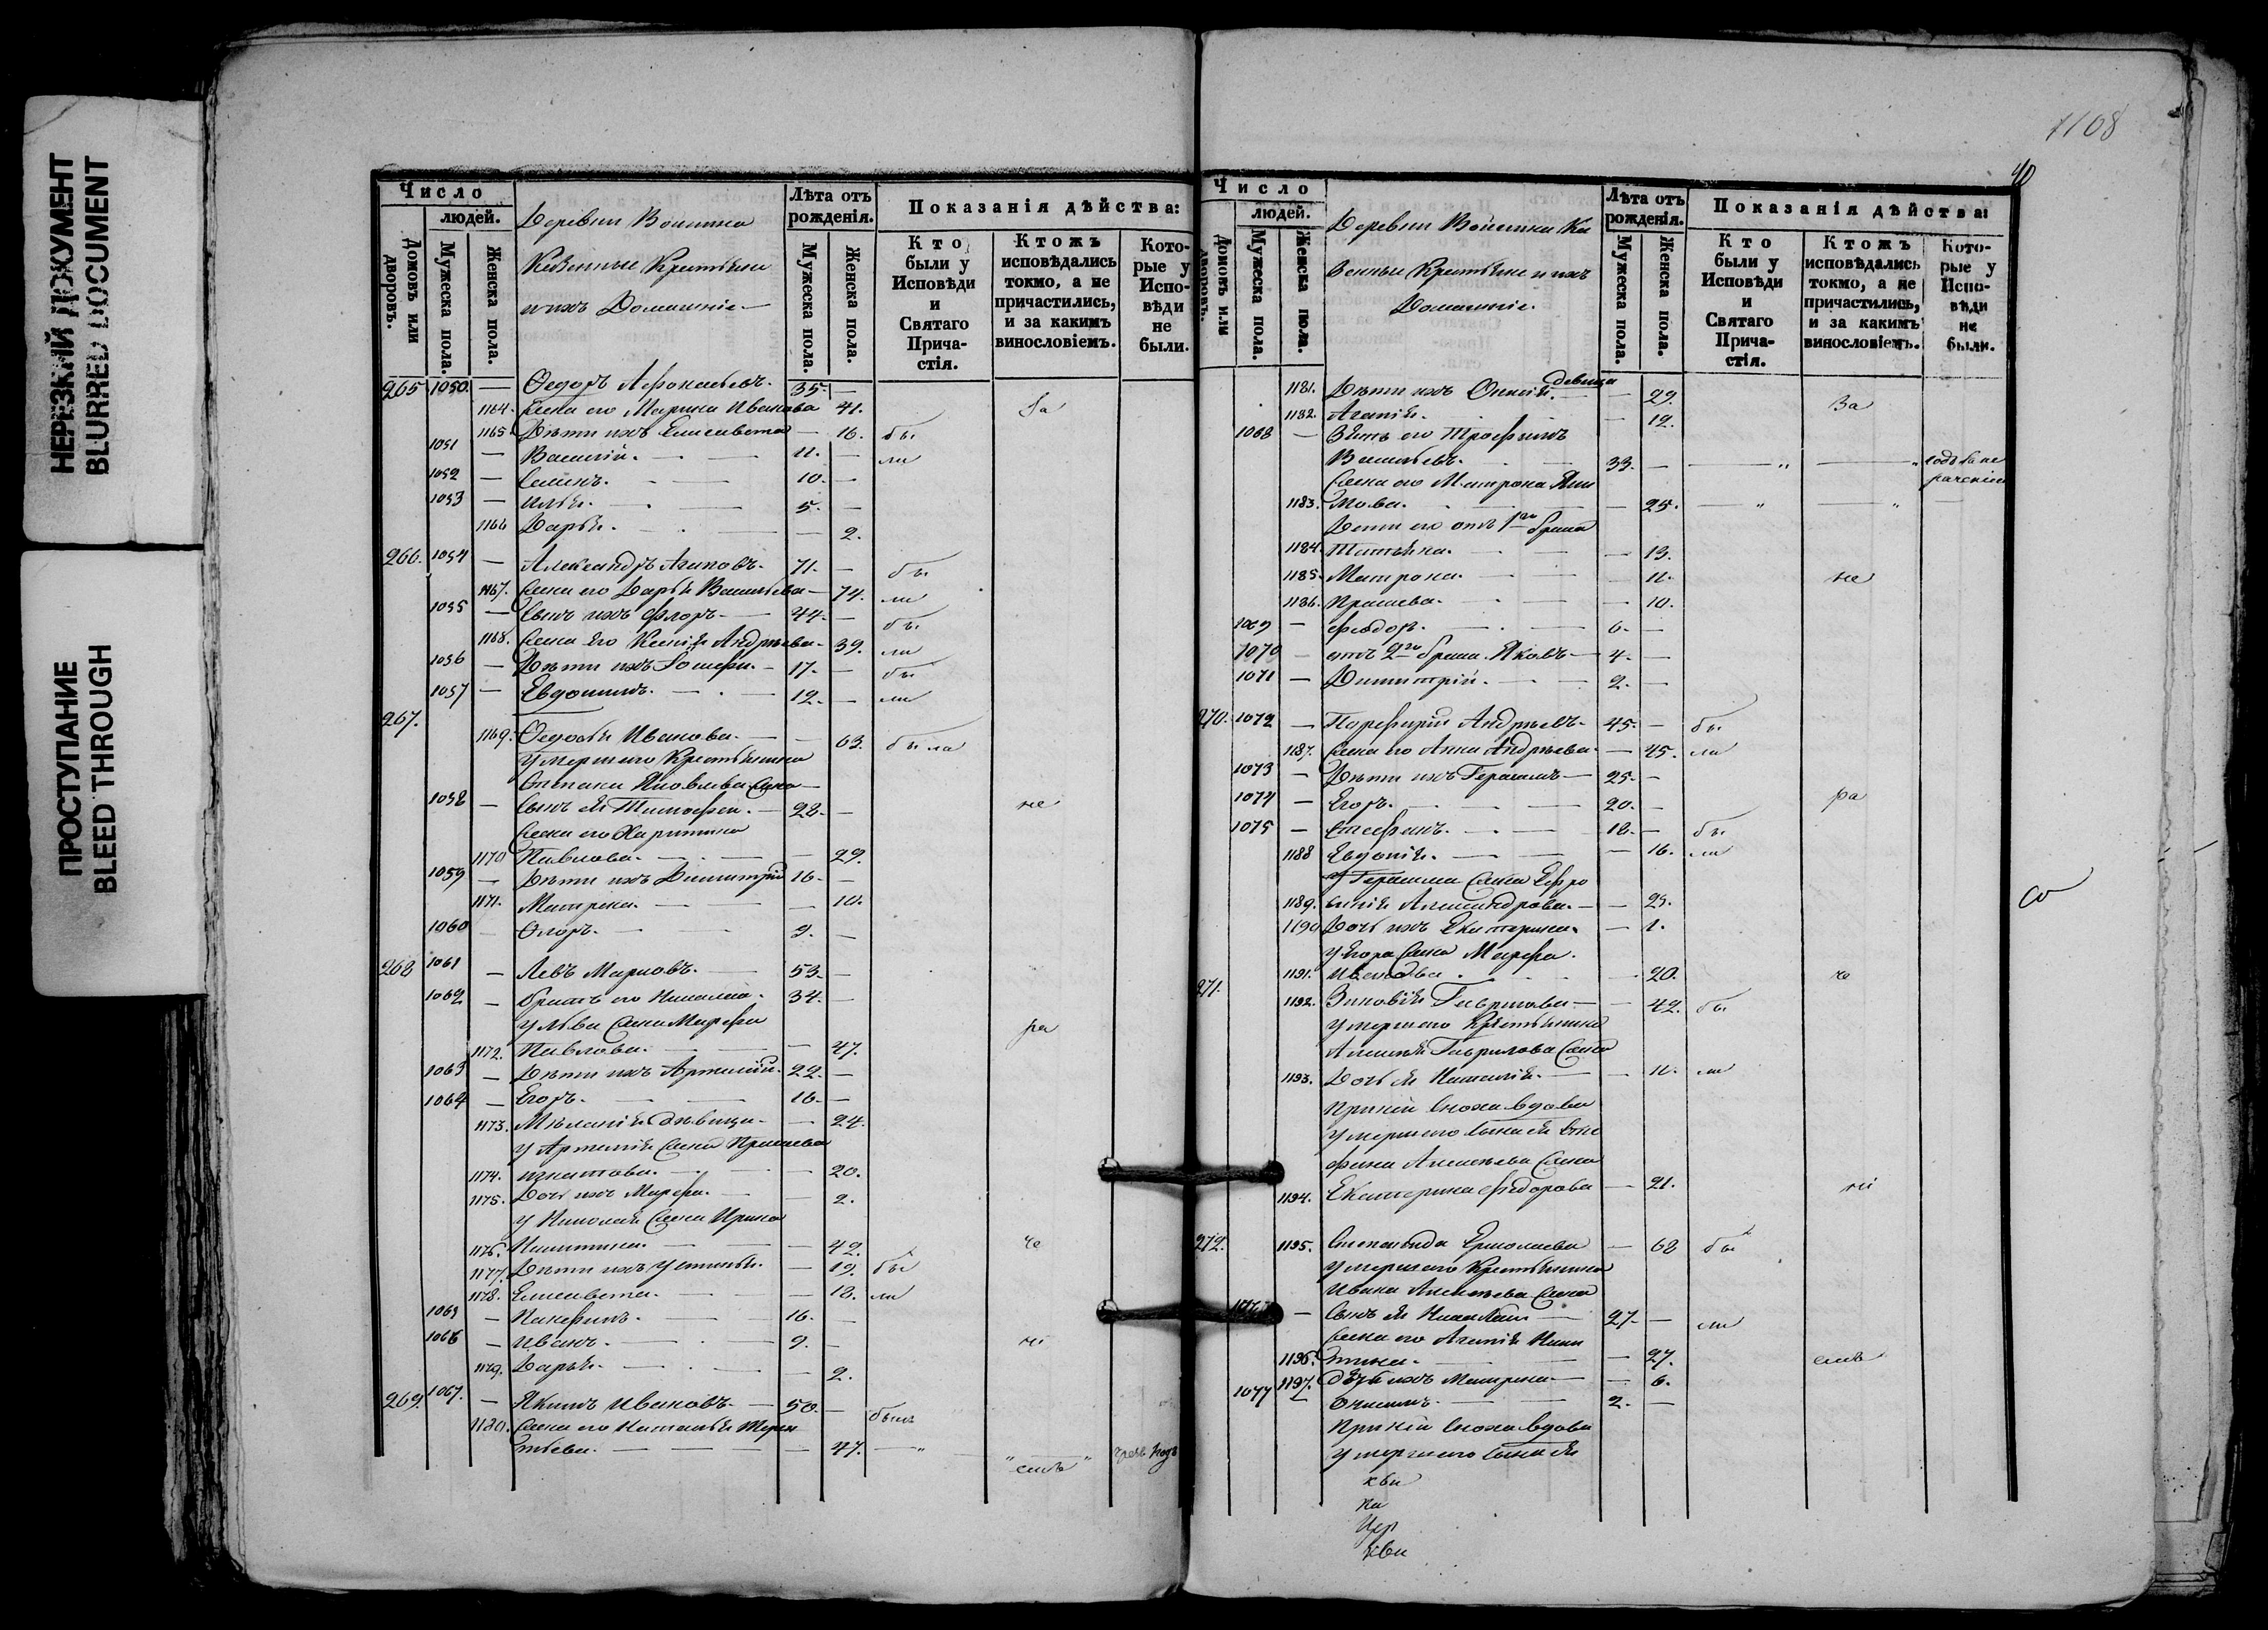 НЕРЕЗКИЙ ДОКУМЕНТ
BLURRED DOCUMENT
ПРОСТУПАНИЕ
BLEED THROUGH
Число
людей.
Домовъ или дворовъ.
Мужеска пола.
Женска пола.
Деревни
Казенные Крестьяне
и ихъ Домашніе
Лѣта отъ рожденія.
Мужеска пола.
Женска пола.
Показанія дѣйства:
Кто были у Исповѣди и Святаго Причастія.
Ктожъ исповѣдались токмо, а не причастились, и за какимъ винословіемъ.
Которые у Исповѣди не были.
265 1050. — Ѳедоръ Афонасьевъ. 35. — За
1164. Жена его Марина Иванова 41.
1165. Дѣти ихъ Елисавета — 16. бы
1051 — Василій. — 11. — ли
1052 — Семенъ. — 10. —
1053 — Илья. — 5. —
1166 Дарья. — — 2.
266. 1054 — Александръ Агаповъ. 71. — бы
1167. Жена его Дарья Васильева — 74. ли
1055 — Сынъ ихъ Флоръ — 44. — бы
1168. Жена его Ксенія Андреева — 39. ли
1056 — Дѣти ихъ — 17. — бы
1057 — Евдокимъ. — 12. — ли
267.
1169. Ѳедосья Иванова. — — 63. была
умершаго Крестьянина
Степана Яковлева Жена —
1058 — Сынъ ея Тимофей. — 28. — не
Жена его Харитина
1170 Павлова. — — 29.
1059 — Дѣти ихъ Димитрій 16. —
1171. Матрена. — — 10.
1060 — Флоръ. — 9. —
268 1061 — Левъ Марковъ. — 53. —
1062 — братъ его Николай. 34. —
у Льва Жена Марфа ра
1172. Павлова. — — 47.
1063 — Дѣти ихъ Артемій. 22. —
1064 — Егоръ. — 16. —
1173. Меланія дѣвица. — 24.
у Артемія Жена Прасковья
1174. Игнатова. — — 20.
1175. Дочь ихъ Марфа. — — 2.
у Николая Жена Ирина
1176. Никитина. — — 42. че
1177. Дѣти ихъ Устинья. — 19. бы
1178. Елисавета. — — 18. ли
1065 — Панфилъ. — 16. —
1066 — Иванъ. — 9. — ні
1179. Дарья. — — 2.
269. 1067. — Якимъ Ивановъ. — 50. — былъ
1180. Жена его Наталья Терен
тьева. — — 47. — " " емъ "
1108
40
Число
людей.
Домовъ или дворовъ.
Мужеска пола.
Женска пола.
Деревни Ка
зенные Крестьяне и ихъ
Домашніе.
Лѣта отъ рожденія.
Мужеска пола.
Женска пола.
Показанія дѣйства:
Кто были у Исповѣди и Святаго Причастія.
Ктожъ исповѣдались токмо, а не причастились, и за какимъ винословіемъ.
Которые у Исповѣди не были.
девица
1181. Дѣти ихъ — 29. За
1182. Агапія. — 12.
1068 — Зять его Трофимъ
Васильевъ. — 33. — — " — "
Жена его Матрона Яки
1183. мова. — — 25. — " — "
Дети его отъ 1го брака
1184. Татьяна. — — 13.
1185. Матрона. — — 11. не
1186. Прасковья. — — 10.
1069 — Феодоръ. — 6. —
1070 — отъ 2го брака Яковъ — 4. —
1071 — Димитрій. — 2. —
270. 1072 — Порфирій Андреевъ — 45. — бы
1187. Жена его Анна Андреева — 45. ли
1073 — Дѣти ихъ Герасимъ — 25. —
1074 — Егоръ. — 20. — ра
1075 — Стефанъ. — 18. — бы
1188 Евдокія. — — 16. ли
у Герасима Жена Ефро
1189. синія Александрова. — — 23.
1190 Дочь ихъ Екатерина. — 1.
у Егора Жена Марфа.
1191. Иванова. — 20. че
271.
1192. Зиновія Гаврилова — — 42. бы
умершаго Крестьянина
Алексѣя Гаврилова Жена
1193. Дочь ея Наталія. — — 11. ли
при ней сноха вдова
умершаго сына ея Сте
фана Алексѣева Жена
1194. Екатерина Ѳедорова — 21. ні
272. 1195. Степанида Ермолаева — 68 бы
умершаго Крестьянина
Ивана Алексѣева Жена
1076 — Сынъ ея — 27. — ли
Жена его Агапія Ники
1196. тина. — — 27. емъ
1197. Дѣти ихъ Матрена — — 6.
1077 — Онисимъ. — 2. —
При ней сноха вдова
умершаго сына ея
кви
на
Цер
кви